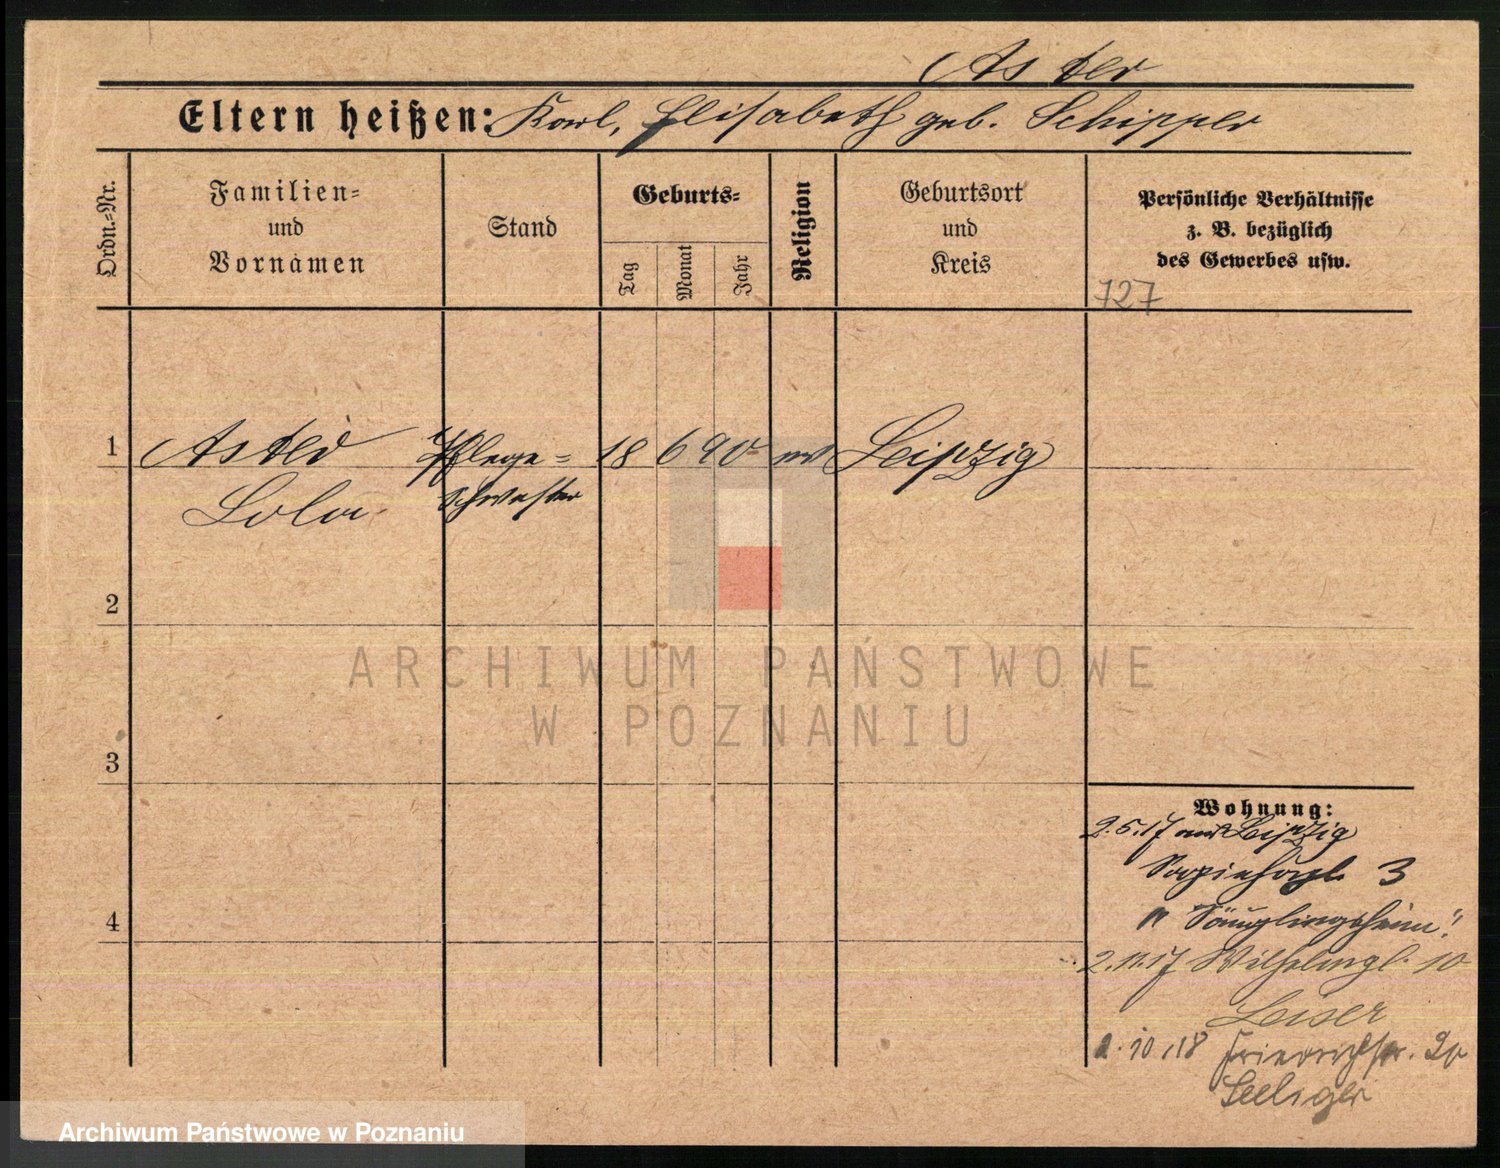 Aster
Eltern heißen: Karl, Elisabeth geb. Schipper
Ordn.=Nr.
Familien=
und
Vornamen
Stand
Geburts=
Tag
Monat
Jahr
Religion
Geburtsort
und
Kreis
Persönliche Verhältnisse
z. B. bezüglich
des Gewerbes usw.
727
1 Aster Pflege= 18 6 90 Leipzig
Lola schwester
2
ARCHIWUM PAŃSTWOWE
W POZNANIU
3
Wohnung:
2.5.17 aus Leipzig
Sapiehapl. 3
"Säuglingsheim"
4
2.11.17 Wilhelmpl. 10
Leiser
10.18 Friedrichstr. 20
Seeliger
Archiwum Państwowe w Poznaniu